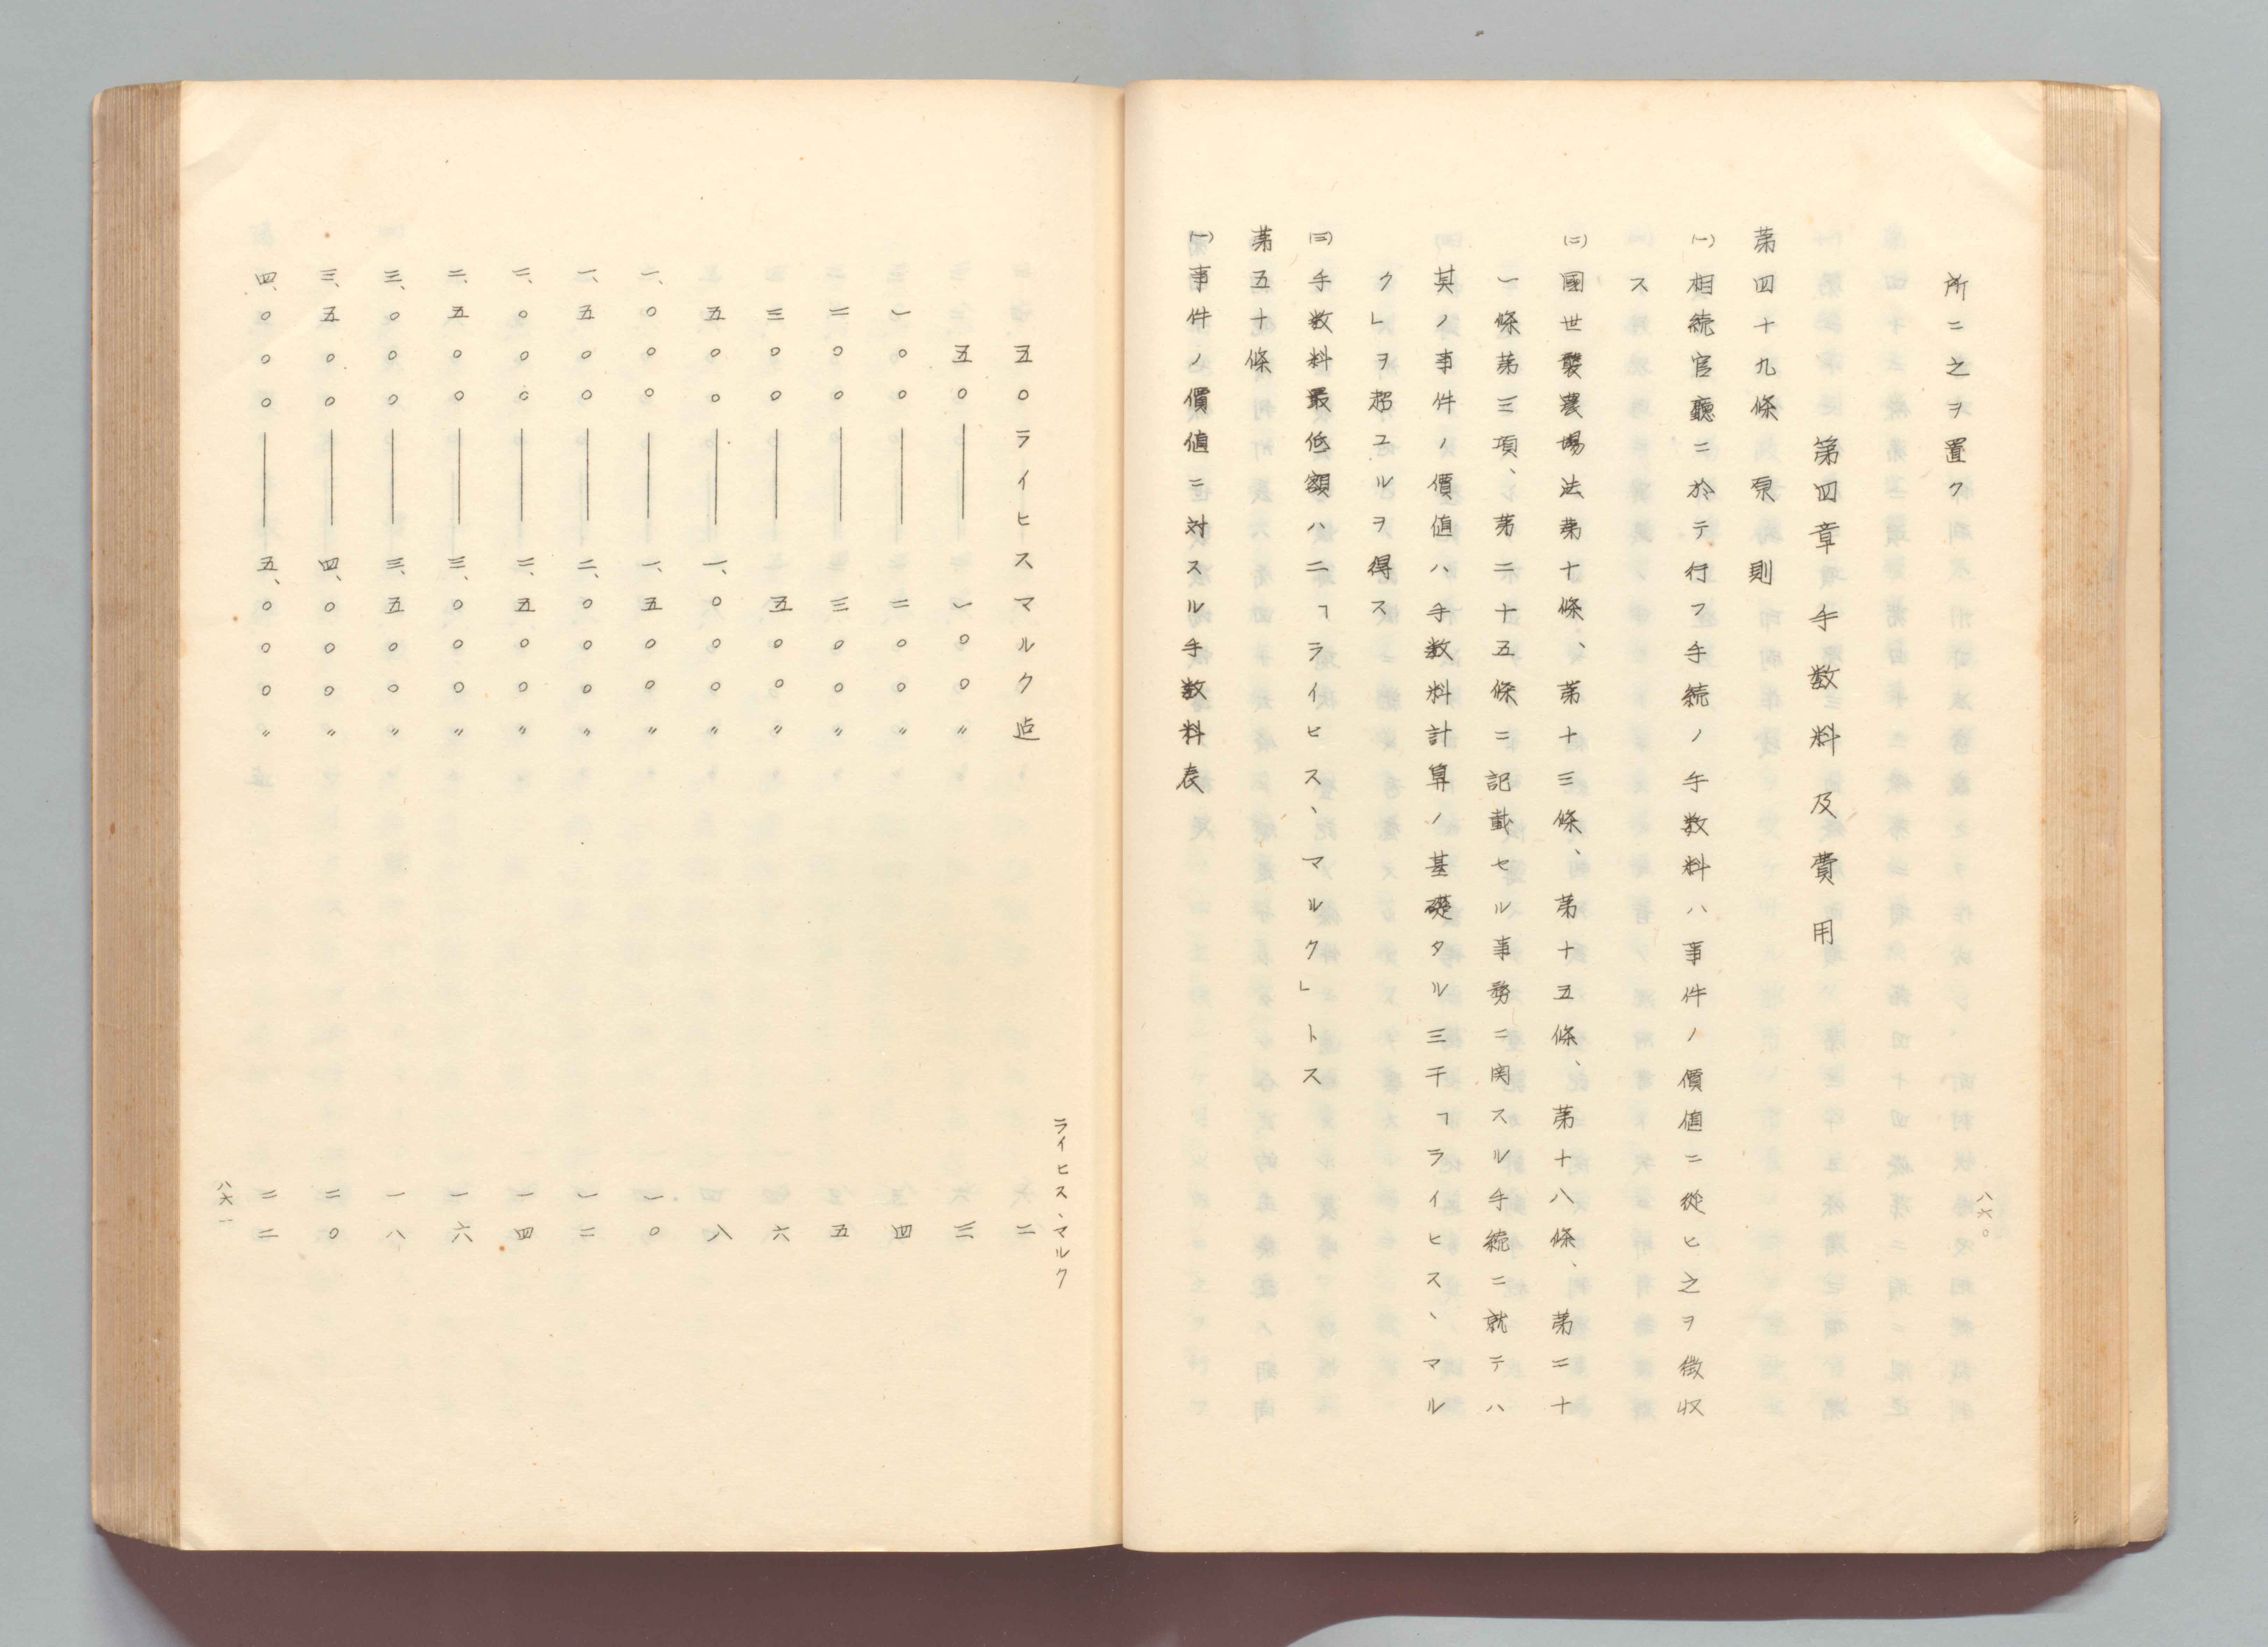 八六〇
所ニ之ヲ置ク
第四章 手数料及費用
第四十九條 原則
㈠相続官廳ニ於テ行フ手続ノ手数料ハ事件ノ價値ニ從ヒ之ヲ徴収
ス
㈡國世襲農場法第十條、第十三條、第十五條、第十八條、第二十
一條第三項、第二十五條ニ記載セル事務ニ関スル手続ニ就テハ
其ノ事件ノ價値ハ手数料計算ノ基礎タル三千「ライヒス、マル
ク」ヲ超ユルヲ得ス
㈢手数料最低額ハ二「ライヒス、マルク」トス
第五十條
㈠事件ノ價値ニ対スル手数料表
ライヒス、マルク
五〇ライヒスマルク迄 二
五〇――一〇〇〃 三
一〇〇――二〇〇〃 四
二〇〇――三〇〇〃 五
三〇〇――五〇〇〃 六
五〇〇――一、〇〇〇〃 八
一、〇〇〇――一、五〇〇〃 一〇
一、五〇〇――二、〇〇〇〃 一二
二、〇〇〇――二、五〇〇〃 一四
二、五〇〇――三、〇〇〇〃 一六
三、〇〇〇――三、五〇〇〃 一八
三、五〇〇――四、〇〇〇〃 二〇
四、〇〇〇――五、〇〇〇〃 二二
八六一